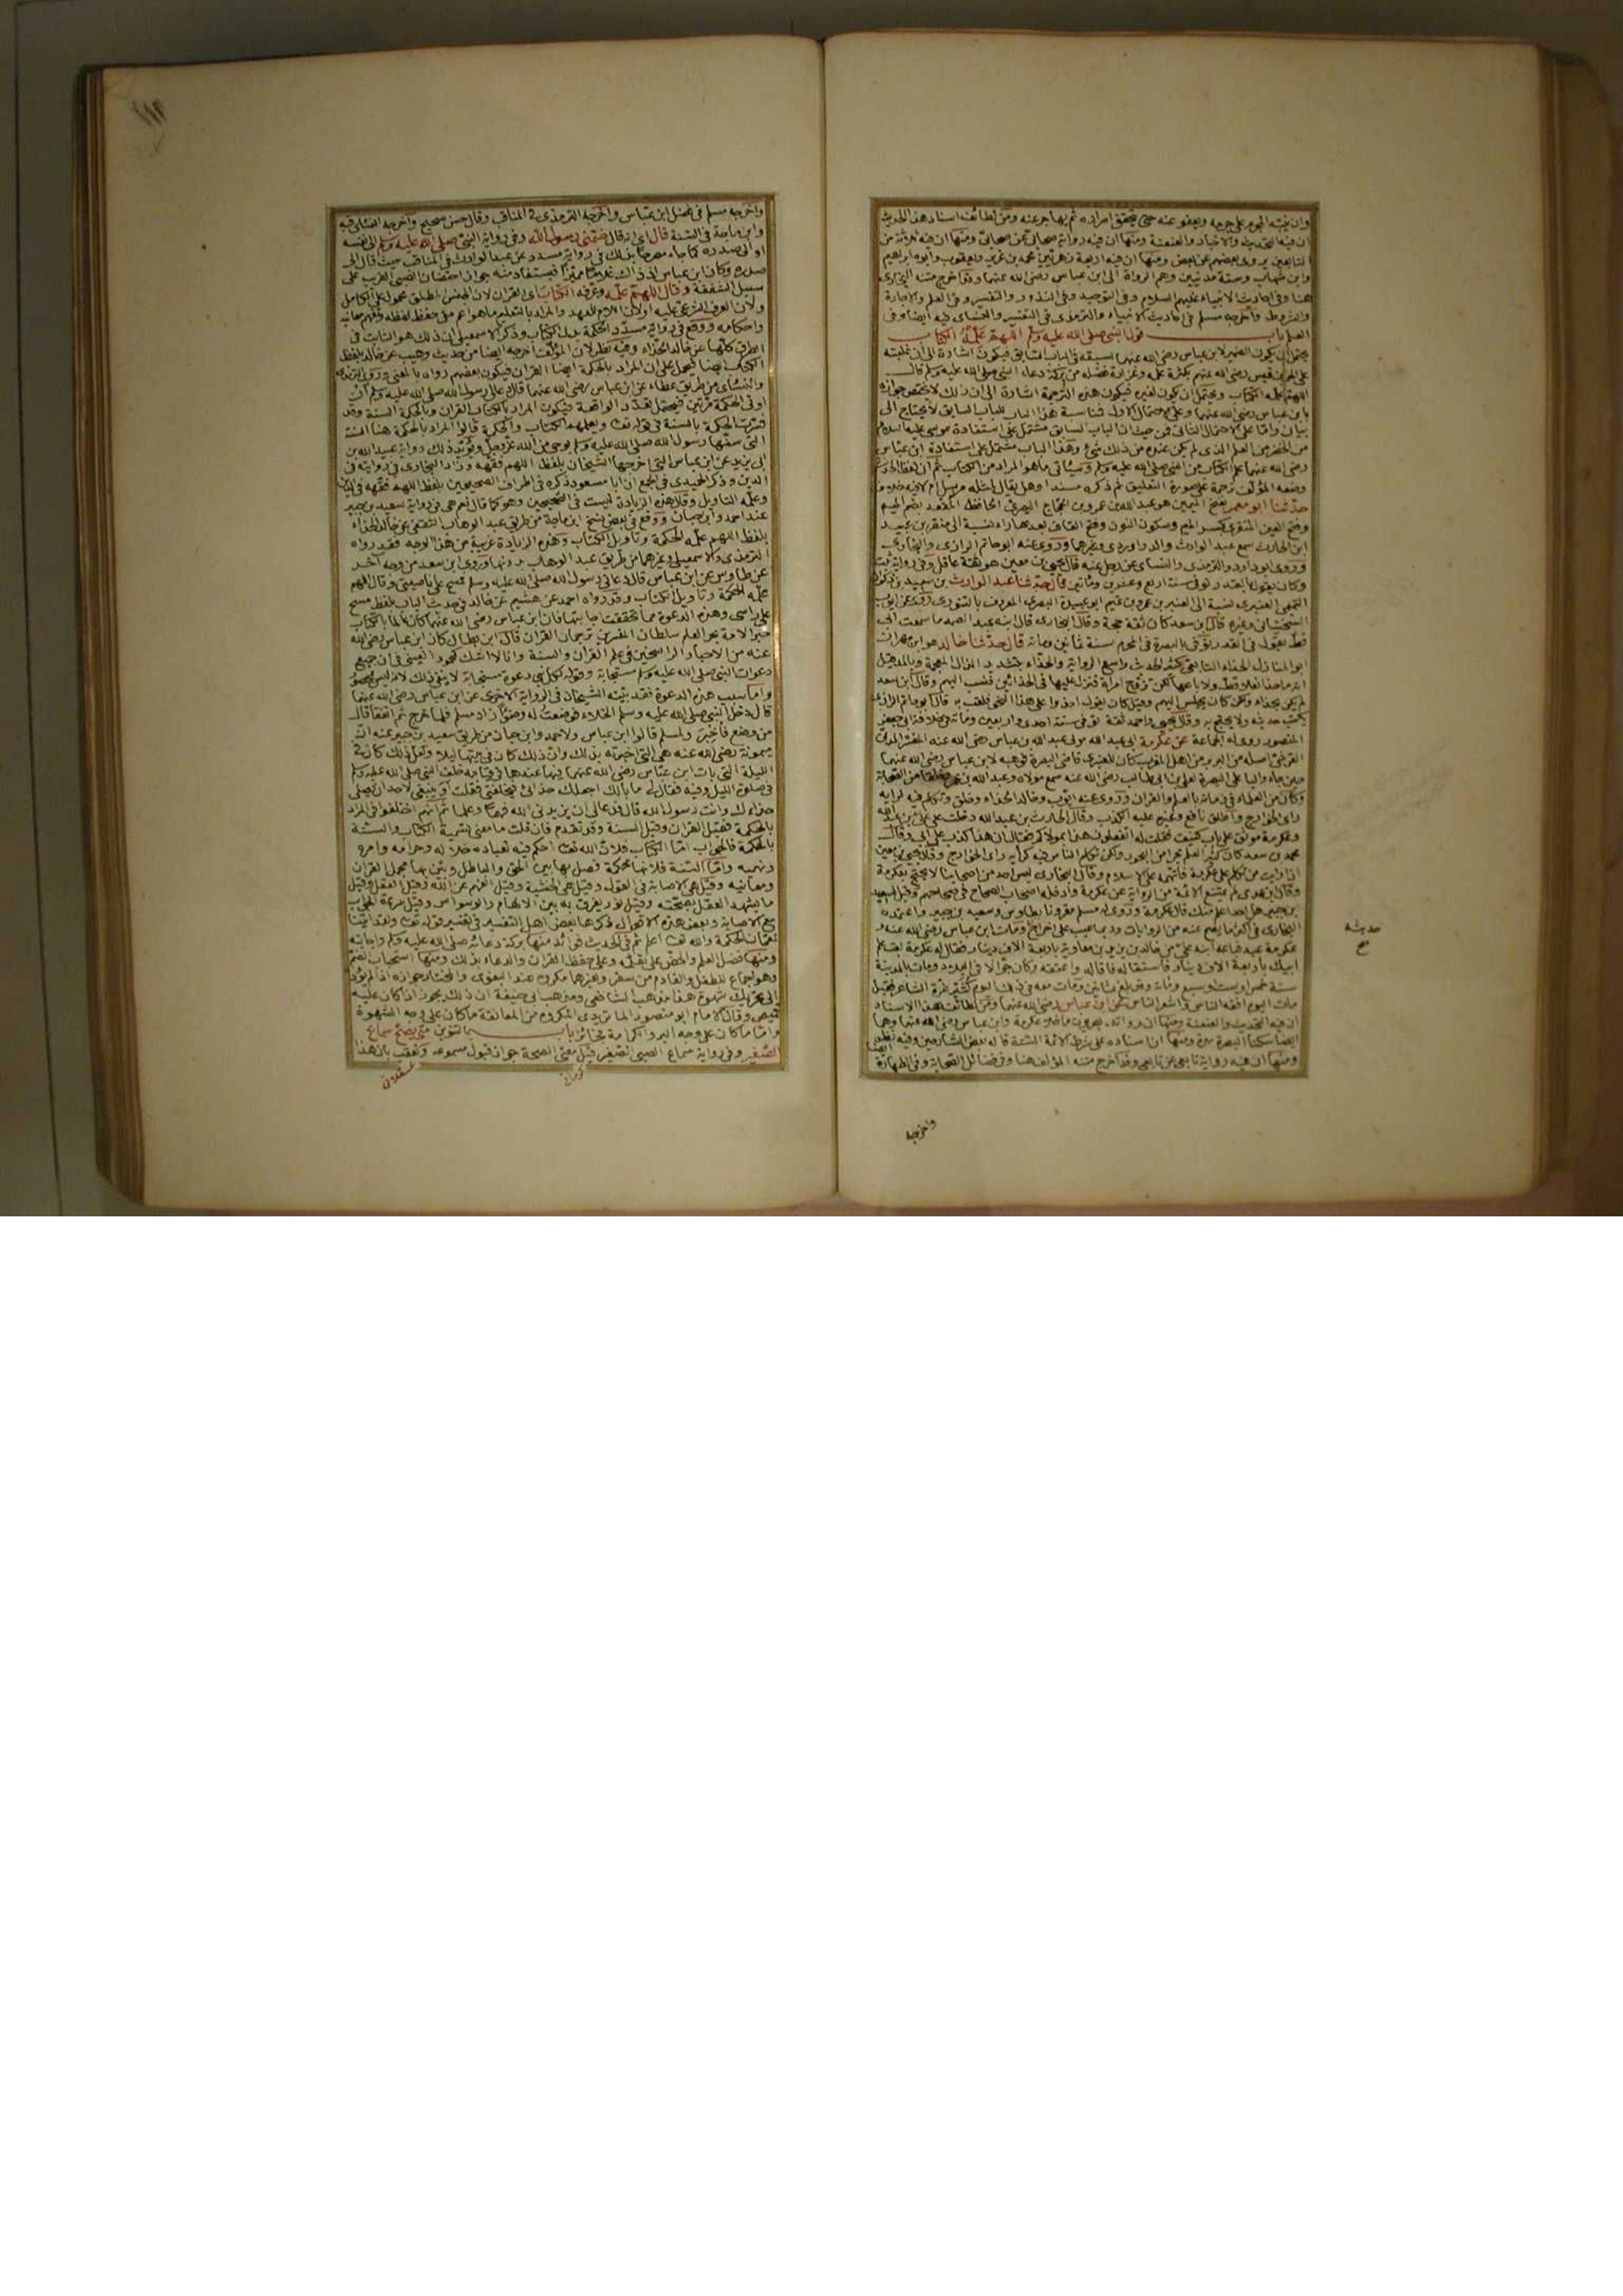 وان ينبه المجرم على جرمه ويعفو عنه حتى يتحقق اصراره ثم يهاجر عنه ومن لطائف اسناد هذا الحديث
ان فيه التحديث والاخبار والعنعنة ومنها ان فيه رواية صحابي عن صحابي ومنها ان فيه ثلاثة من
التابعين يروى بعضهم عن بعض ومنها ان فيه اربعة زهريين محمد بن غرير ويعقوب وابوه ابراهيم
وابن شهاب وستة مدنيين وهم الرواة الى ابن عباس رضى الله عنهما وقد اخرج متنه البخارى
هنا وفى احاديث الانبياء عليهم السلام وفى التوحيد وفى النذور والتفسير وفى العلم والاجارة
والشروط واخرجه مسلم فى احاديث الانبياء والترمذى فى التفسير والنسائى فيه ايضا وفى
العلم باب قول النبى صلى الله عليه وسلم اللهم علمه الكتاب
يحتمل ان يكون الضمير لابن عباس رضى الله عنهما لسبقه فى الباب السابق فيكون اشارة الى ان غلبته
على الحر بن قيس رضى الله عنهم بكثرة علمه وغزارة فضله من بركة دعاء النبى صلى الله عليه وسلم قال
اللهم علمه الكتاب ويحتمل ان يكون لغيره فيكون هذه الترجمة اشارة الى ان ذلك لا يختص جوازه
بابن عباس رضى الله عنهما وعلى الاحتمال الاول مناسبة هذا الباب للباب السابق لا يحتاج الى
بيان واما على الاحتمال الثانى فمن حيث ان الباب السابق مشتمل على استفادة موسى عليه السلام
من الخضر من العلم الذى لم يكن عنده من ذلك شئ وهذا الباب مشتمل على استفادة ابن عباس
رضى الله عنهما علم الكتاب من النبى صلى الله عليه وسلم وسيأتى ما هو المراد من الكتاب
حدثنا ابو معمر بفتح الميمين هو عبد الله بن عمرو بن الحجاج البصرى الحافظ المقعد بضم الميم
وفتح العين المنقرى بكسر الميم وسكون النون وفتح القاف بعدها راء نسبة الى منقر بن عبيد
ابن الحارث سمع عبد الوارث والدراوردى وغيرهما وروى عنه ابو حاتم الرازى والبخارى
وروى ابو داود والترمذى والنسائى عن رجل عنه قال يحيى بن معين هو ثقة عاقل وفى رواية ثبت
وكان يقول بالقدر توفى سنة اربع وعشرين ومائتين قال حدثنا عبد الوارث بن سعيد بن ذكوان
التميمى العنبرى نسبة الى العنبر بن عمرو بن تميم ابو عبيدة البصرى المعروف بالتنورى روى عن ايوب
السختيانى وغيره قال ابن سعد كان ثقة حجة وقال البخارى قال ابنه عبد الصمد ما سمعت ابى
قط يقول فى القدر توفى بالبصرة فى المحرم سنة ثمانين ومائة قال حدثنا خالد هو ابن مهران
ابو المنازل الحذاء التابعى كثير الحديث واسع الرواية والحذاء بتشديد الذال المعجمة وبالمد قيل
انه ما حذا نعلا قط ولا باعها لكن تزوج امرأة فنزل عليها فى الحذائين فنسب اليهم وقال ابن سعد
لم يكن بحذاء ولكن كان يجلس اليهم وقيل كان يقول احذوا على هذا النحو فلقب به قال ابو حاتم الرازى
يكتب حديثه ولا يحتج به وقال يحيى واحمد ثقة توفى سنة احدى واربعين ومائة فى خلافة ابى جعفر
المنصور روى له الجماعة عن عكرمة ابى عبد الله مولى عبد الله بن عباس رضى الله عنه المفسر المدنى
القرشى اصله من البربر من اهل المغرب كان للعنبرى قاضى البصرة فوهبه لابن عباس رضى الله عنهما
حين جاء واليا على البصرة لعلى بن ابى طالب رضى الله عنه سمع مولاه وعبد الله بن عمر وخلقا من الصحابة
وكان من العلماء فى زمانه بالعلم والقران وروى عنه ايوب وخالد الحذاء وخلق وتكلم فيه لرأيه
رأى الخوارج واطلق نافع وغيره عليه الكذب وقال الحارث بن عبد الله دخلت على على بن عبد الله
وعكرمة موثق على باب كنيف فقلت له اتفعلون هذا بمولاكم فقال ان هذا كذب على ابى وقال
محمد بن سعد كان كثير العلم بحرا من البحور ولكن تكلم الناس فيه لرأيه رأى الخوارج وقال يحيى بن معين
اذا رأيت من تكلم على عكرمة فاتهمه على الاسلام وقال البخارى ليس احد من اصحابنا الا يحتج بعكرمة
وقال ابن عدى لم يمتنع الائمة من الرواية عن عكرمة وادخله اصحاب الصحاح فى صحاحهم وقيل لسعيد
بن جبير هل احد اعلم منك قال عكرمة وروى له مسلم مقرونا بطاوس وسعيد بن جبير واعتمده
البخارى فى اكثر ما يصح عنه من الروايات وربما عيب على اخراج ومات ابن عباس رضى الله عنه و
عكرمة عبد فباعه ابنه على من خالد بن يزيد بن معاوية باربعة الاف دينار فقال له عكرمة بعت علم
ابيك باربعة الاف دينار فاستقاله فاقاله واعتقه وكان جوالا فى البلاد ومات بالمدينة
سنة خمس او ست او سبع ومائة وقد بلغ ثمانين ومات معه فى ذلك اليوم كثير عزة الشاعر فقيل
مات اليوم افقه الناس واشعر الناس عن ابن عباس رضى الله عنهما ومن لطائف هذا الاسناد
ان فيه التحديث والعنعنة ومنها ان رواته بصريون ما خلا عكرمة وابن عباس رضى الله عنهما وهما
ايضا سكنا البصرة مدة ومنها ان اسناده على شرط الائمة الستة قاله بعض الشارحين وفيه نظر
ومنها ان فيه رواية تابعى عن تابعى وقد اخرج متنه المؤلف هنا وفى فضائل الصحابة وفى الطهارة
حديثه
صح
واخرجه
واخرجه مسلم فى فضل ابن عباس واخرجه الترمذى فى المناقب وقال حسن صحيح واخرجه النسائى فيه
وابن ماجة فى السنة قال اى انه قال ضمنى رسول الله وفى رواية النبى صلى الله عليه وسلم الى نفسه
او الى صدره كما جاء مصرحا بذلك فى رواية مسدد عن عبد الوارث فى المناقب حيث قال الى
صدره وكان ابن عباس اذ ذاك غلاما مميزا فيستفاد منه جواز احتضان الصبى القريب على
سبيل الشفقة وقال اللهم علمه وعرفه الكتاب اى القران لان الجنس المطلق محمول على الكامل
ولان العرف الشرعى عليه او لان اللام للعهد والمراد بالتعليم ما هو اعم من حفظ لفظه وفهم معانيه
واحكامه ووقع فى رواية مسدد الحكمة بدل الكتاب وذكر الاسمعيلى ان ذلك هو الثابت فى
الطرق كلها عن خالد الحذاء وفيه نظر لان المؤلف اخرجه ايضا من حديث وهيب عن خالد بلفظ
الكتاب ايضا فيحمل على ان المراد بالحكمة ايضا القران فيكون بعضهم رواه بالمعنى وروى الترمذى
والنسائى من طريق عطاء عن ابن عباس رضى الله عنهما قال دعا لى رسول الله صلى الله عليه وسلم ان
اوتى الحكمة مرتين فيحتمل تعدد الواقعة فيكون المراد بالكتاب القران وبالحكمة السنة وقد
فسرت الحكمة بالسنة فى قوله تعالى ويعلمهم الكتاب والحكمة قالوا المراد بالحكمة هنا السنة
التى سنها رسول الله صلى الله عليه وسلم بوحى من الله عز وجل ويؤيد ذلك رواية عبيد الله بن
ابى يزيد عن ابن عباس التى اخرجها الشيخان بلفظ اللهم فقهه وزاد البخارى فى روايته فى
الدين وذكر الحميدى فى الجمع ان ابا مسعود ذكره فى اطراف الصحيحين بلفظ اللهم فقهه فى الدين
وعلمه التاويل وقال هذه الزيادة ليست فى الصحيحين وهو كما قال نعم هى فى رواية سعيد بن جبير
عند احمد وابن حبان ووقع فى بعض نسخ ابن ماجة من طريق عبد الوهاب الثقفى عن خالد الحذاء
بلفظ اللهم علمه الحكمة وتاويل الكتاب وهذه الزيادة غريبة من هذا الوجه فقد رواه
الترمذى والاسمعيلى وغيرهما من طريق عبد الوهاب بدونها وروى ابن سعد من وجه اخر
عن طاوس عن ابن عباس قال دعانى رسول الله صلى الله عليه وسلم فمسح على ناصيتى وقال اللهم
علمه الحكمة وتاويل الكتاب وقد رواه احمد عن هشيم عن خالد فى حديث الباب بلفظ مسح
على راسى وهذه الدعوة مما تحققت اجابتها فان ابن عباس رضى الله عنهما كان عالما بالكتاب
حبر الامة بحر العلم سلطان المفسرين ترجمان القران قال ابن بطال كان ابن عباس رضى الله
عنه من الاحبار الراسخين فى علم القران والسنة
دعوات النبى صلى الله عليه وسلم مستجابة وقوله لكل نبى دعوة مستجابة لا ينفى ذلك لانه ليس بمحصور
واما سبب هذه الدعوة فقد بينه الشيخان فى الرواية الاخرى عن ابن عباس رضى الله عنهما
قال دخل النبى صلى الله عليه وسلم الخلاء فوضعت له وضوءا زاد مسلم فلما خرج ثم اتفقا قال
من وضع فاخبر ولمسلم قالوا ابن عباس ولاحمد وابن حبان من طريق سعيد بن جبير عنه ان
ميمونة رضى الله عنه هى التى اخبرته بذلك وان ذلك كان فى بيتها ليلا ولعل ذلك كان فى
الليلة التى بات ابن عباس رضى الله عنهما فيها عندها فى قيامه خلف النبى صلى الله عليه وسلم
فى صلوة الليل وفيه فقال لى ما بالك اجعلك حذائى فتخلفنى فقلت او ينبغى لاحد ان يصلى
حذاءك وانت رسول الله قال فدعا لى ان يزيدنى الله فهما وعلما ثم انهم اختلفوا فى المراد
بالحكمة فقيل القران وقيل السنة وقد تقدم فان قلت ما معنى تسمية الكتاب والسنة
بالحكمة فالجواب اما الكتاب فلان الله تعالى احكم فيه لعباده حلاله وحرامه وامره
ونهيه واما السنة فلانها محكمة فصل بها بين الحق والباطل وبين بها مجمل القران
ومعانيه وقيل هى الاصابة فى القول وقيل هى الخشية وقيل الفهم عن الله وقيل العقل وقيل
ما يشهد العقل بصحته وقيل نور يفرق به بين الالهام والوسواس وقيل سرعة الجواب
مع الاصابة وبعض هذه الاقوال ذكرها بعض اهل التفسير فى تفسير قوله تعالى ولقد اتينا
لقمان الحكمة والله تعالى اعلم ثم فى الحديث فوائد منها بركة دعائه صلى الله عليه وسلم واجابته
ومنها فضل العلم والحض على تعلمه وعلى حفظ القران والدعاء بذلك ومنها استحباب الضم
وهو اجماع للطفل والقادم من سفر ولغيرهما مكروه عند البغوى والمختار جوازه اذا لم يؤد
الى تحريك شهوة هذا مذهب الشافعى ومذهب ابى حنيفة ان ذلك يجوز اذا كان عليه
قميص وقال الامام ابو منصور الماتريدى المكروه من المعانقة ما كان على وجه الشهوة
واما ما كان على وجه البر والكرامة فجائز باب بالتنوين متى يصح سماع
الصغير وفى رواية سماع الصبى الصغير قيل معنى الصحة جواز قبول مسموعه وتعقب بان هذا
كرمانى
عسقلانى